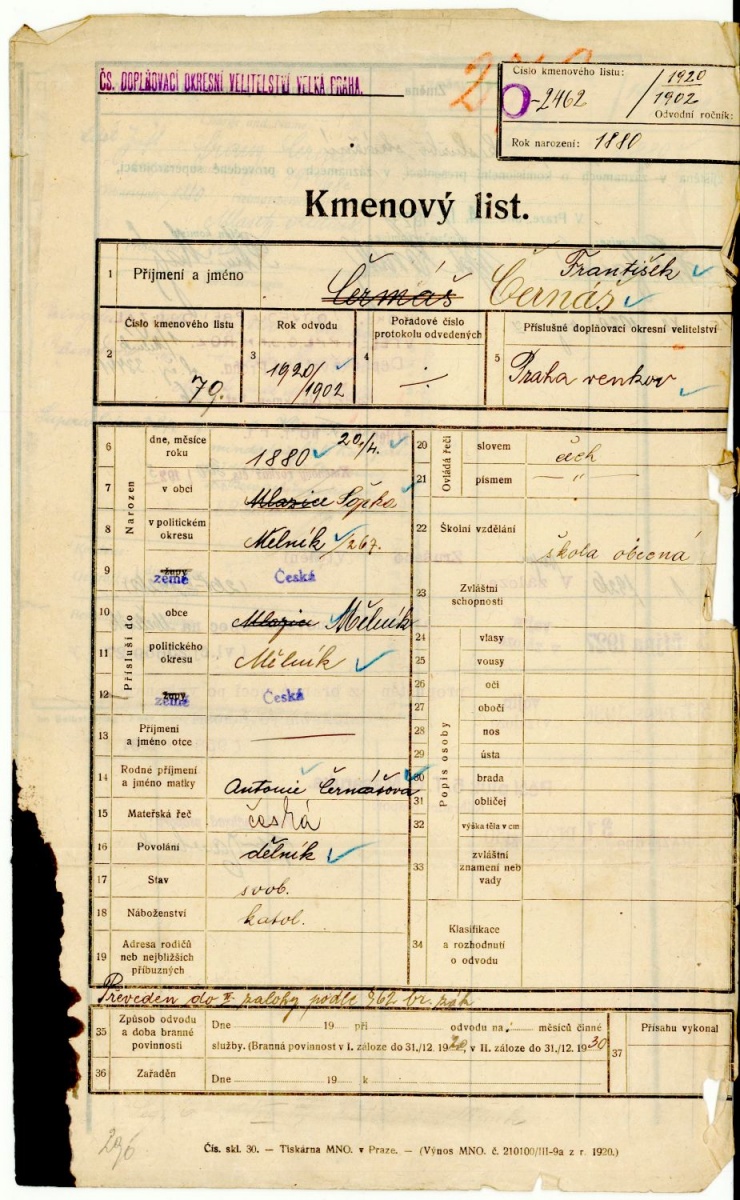 ČS. DOPLŇOVACÍ OKRESNÍ VELITELSTVÍ VELKÁ PRAHA.
Číslo kmenového listu:
O-2462 / 1920
1902
Odvodní ročník:
Rok narození: 1880
Kmenový list.
1 Příjmení a jméno František
Čermáš Černáš
2 Číslo kmenového listu 79.
3 Rok odvodu 1920/1902
4 Pořadové číslo protokolu odvedených
5 Příslušné doplňovací okresní velitelství
Praha venkov
Narozen
6 dne, měsíce roku 1880 20./4.
7 v obci Mlazice Šopka
8 v politickém okresu Mělník /267.
9 župy země Česká
Přísluší do
10 obce Mlazice Mělník
11 politického okresu Mělník
12 župy země Česká
13 Příjmení a jméno otce
14 Rodné příjmení a jméno matky Antonie Černášová
15 Mateřská řeč česká
16 Povolání dělník
17 Stav svob.
18 Náboženství katol.
19 Adresa rodičů neb nejbližších příbuzných
Ovládá řeči
20 slovem čech
21 písmem — " —
22 Školní vzdělání škola obecná
23 Zvláštní schopnosti
Popis osoby
24 vlasy
25 vousy
26 oči
27 obočí
28 nos
29 ústa
30 brada
31 obličej
32 výška těla v cm
33 zvláštní znamení neb vady
34 Klasifikace a rozhodnutí o odvodu
Převeden do II. zálohy podle § 62 br. zák
35 Způsob odvodu a doba branné povinnosti
Dne 19 při odvodu na měsíců činné
služby. (Branná povinnost v I. záloze do 31./12. 1920, v II. záloze do 31./12. 1930
36 Zařaděn Dne 19 k
37 Přísahu vykonal
296
Čís. skl. 30. — Tiskárna MNO. v Praze. — (Výnos MNO. č. 210100/III-9a z r. 1920.)